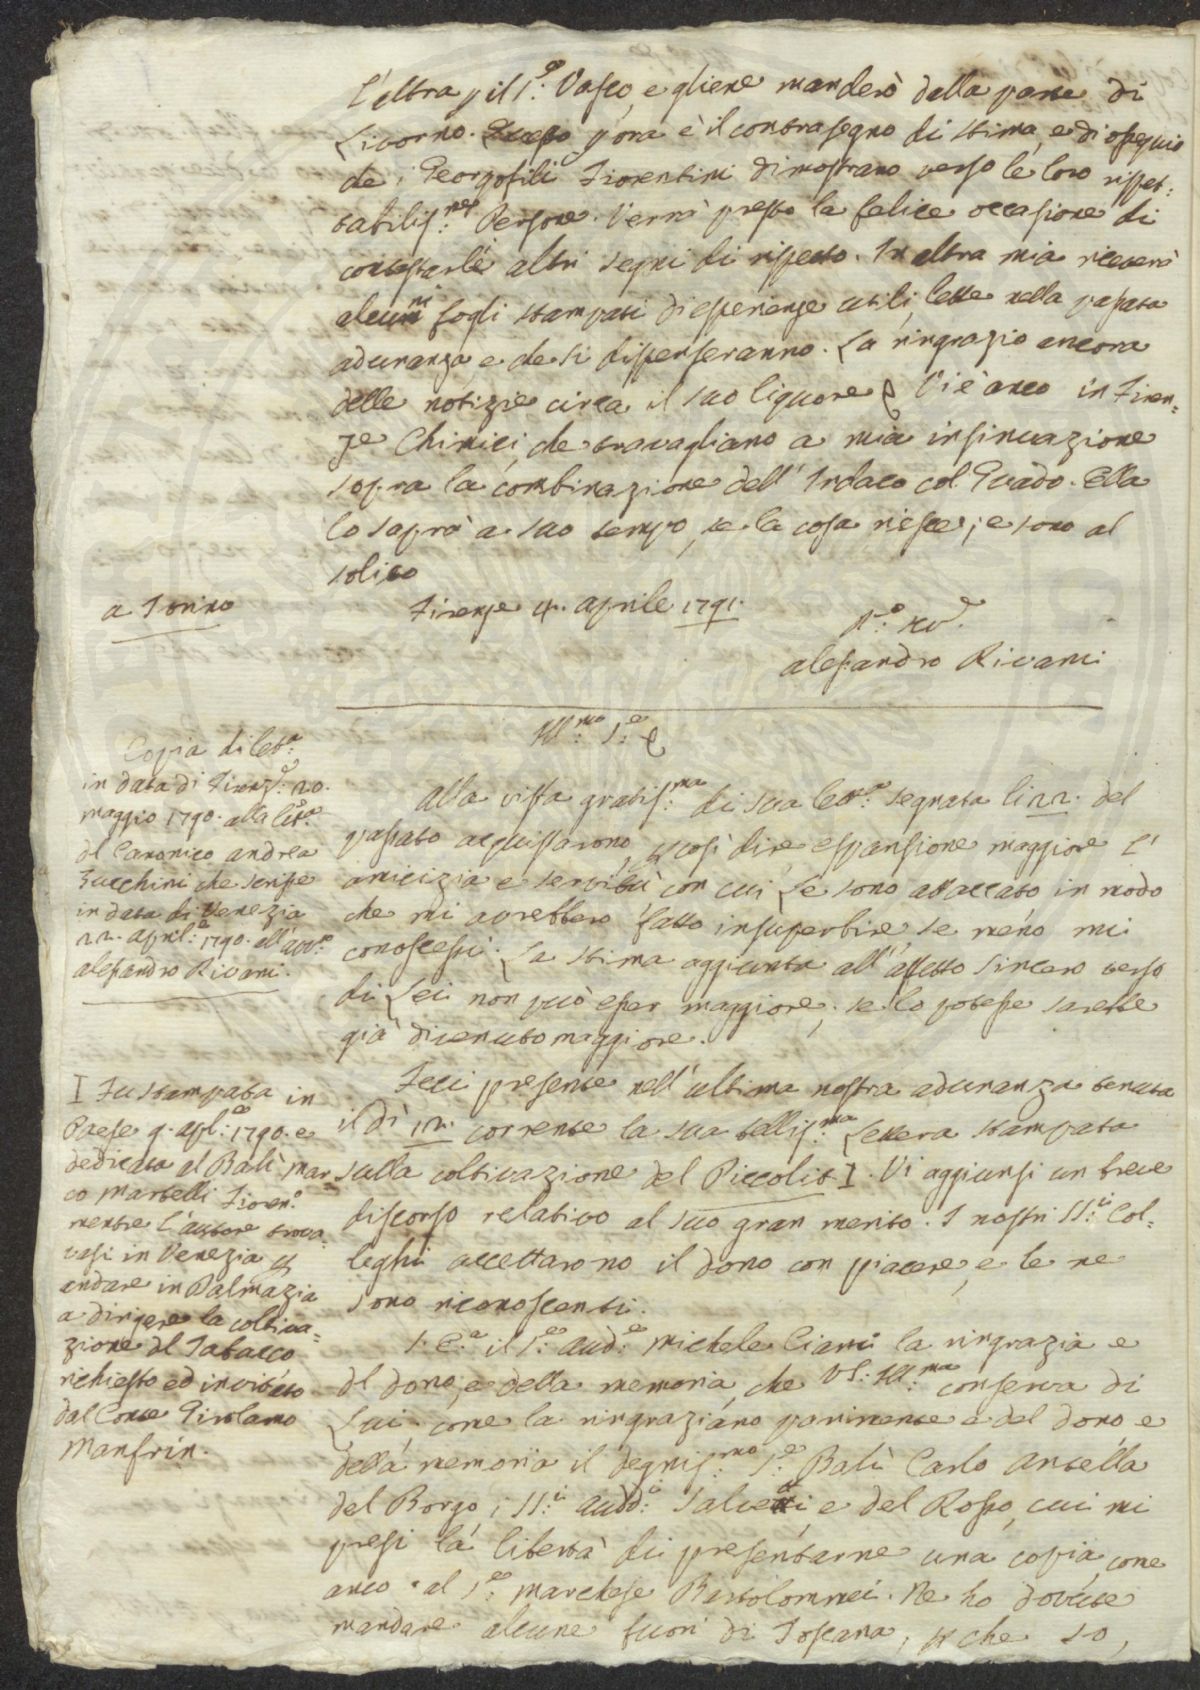 L'altra p il S.e Vasco, e gliene manderò dalla parte di
Livorno. Questo p ora è il contrasegno di stima, e di ossequio
che i Georgofili Fiorentini dimostrano verso le loro rispet=
tabiliss.me Persone. Verrà presto la felice occasione di
contestarle altri segni di rispetto. In altra mia riceverà
alcuni fogli stampati di esperienze utili, lette nella passata
adunanza e che si dispenseranno. La ringrazio ancora
delle notizie circa il suo liquore. Vi è anco in Firen=
ze Chimici, che travagliano a mia insinuazione
sopra la combinazione dell'Indaco col Guado. Ella
lo saprà a suo tempo, se la cosa riesce; e sono al
solito
a Torino
Firenze 4. aprile 1791.
alessandro Rivani
Ill.mo S.e
Copia di let.a
in data di Firenz.e 20.
maggio 1790. alla let.a
del Canonico andrea
Zucchini che scrisse
in data di Venezia
22. april.e 1790. all'avv.o
alessandro Rivani.
alla vista gratiss.ma di sua lett.a segnata li 22. del
passato acquistarono, p così dire, espansione maggiore l'
amicizia e servitù con cui Le sono attaccato in modo
che mi avrebbero fatto insuperbire, se meno mi
conoscessi. La stima aggiunta all'affetto sincero verso
di Lei non può esser maggiore; se lo potesse sarebbe
già divenuto maggiore.
Feci presente nell'ultima nostra adunanza tenuta
il dì 12. corrente la sua belliss.ma Lettera stampata
sulla coltivazione del Piccolit I. Vi aggiunsi un breve
discorso relativo al suo gran merito. I nostri SS.i Col=
leghi accettarono il dono con piacere, e le ne
sono riconoscenti.
I Fu stampata in
Paese 9. apl.e 1790. e
dedicata al Balì Mar=
co Martelli Fioren.o
mentre l'autore trova=
vasi in Venezia p
andare in Dalmazia
a dirigere la coltiva=
zione del Tabacco
richiesto ed invitato
dal Conte Girolamo
Manfrin.
S. E.a il S.e aud.e Michele Ciani la ringrazia e
del dono, e della memoria, che VS. Ill.ma conserva di
Lui, come la ringraziano parimente e del dono e
della memoria il degniss.mo S.e Balì Carlo Antella
del Borgo, i SS.i audd.i Salvetti e del Rosso, cui mi
presi la libertà di presentarne una copia, come
anco al S.e Marchese Bartolommei. Ne ho dovute
mandare alcune fuori di Toscana, p che so,